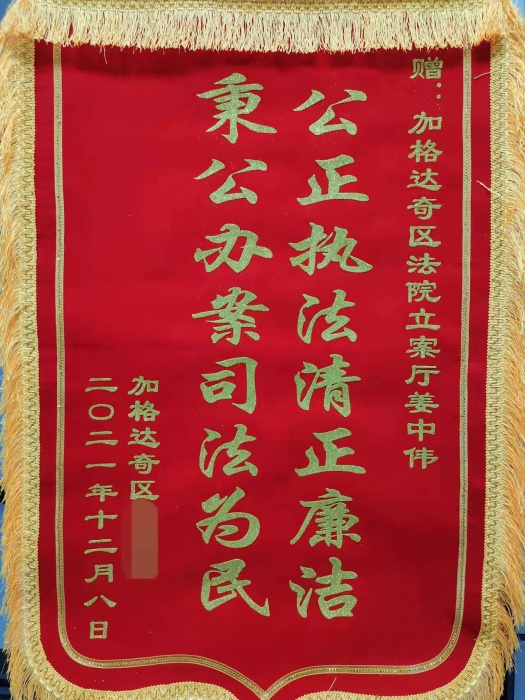 赠：加格达奇区法院立案厅姜中伟
公正执法清正廉洁
秉公办案司法为民
加格达奇区
二〇二一年十二月八日